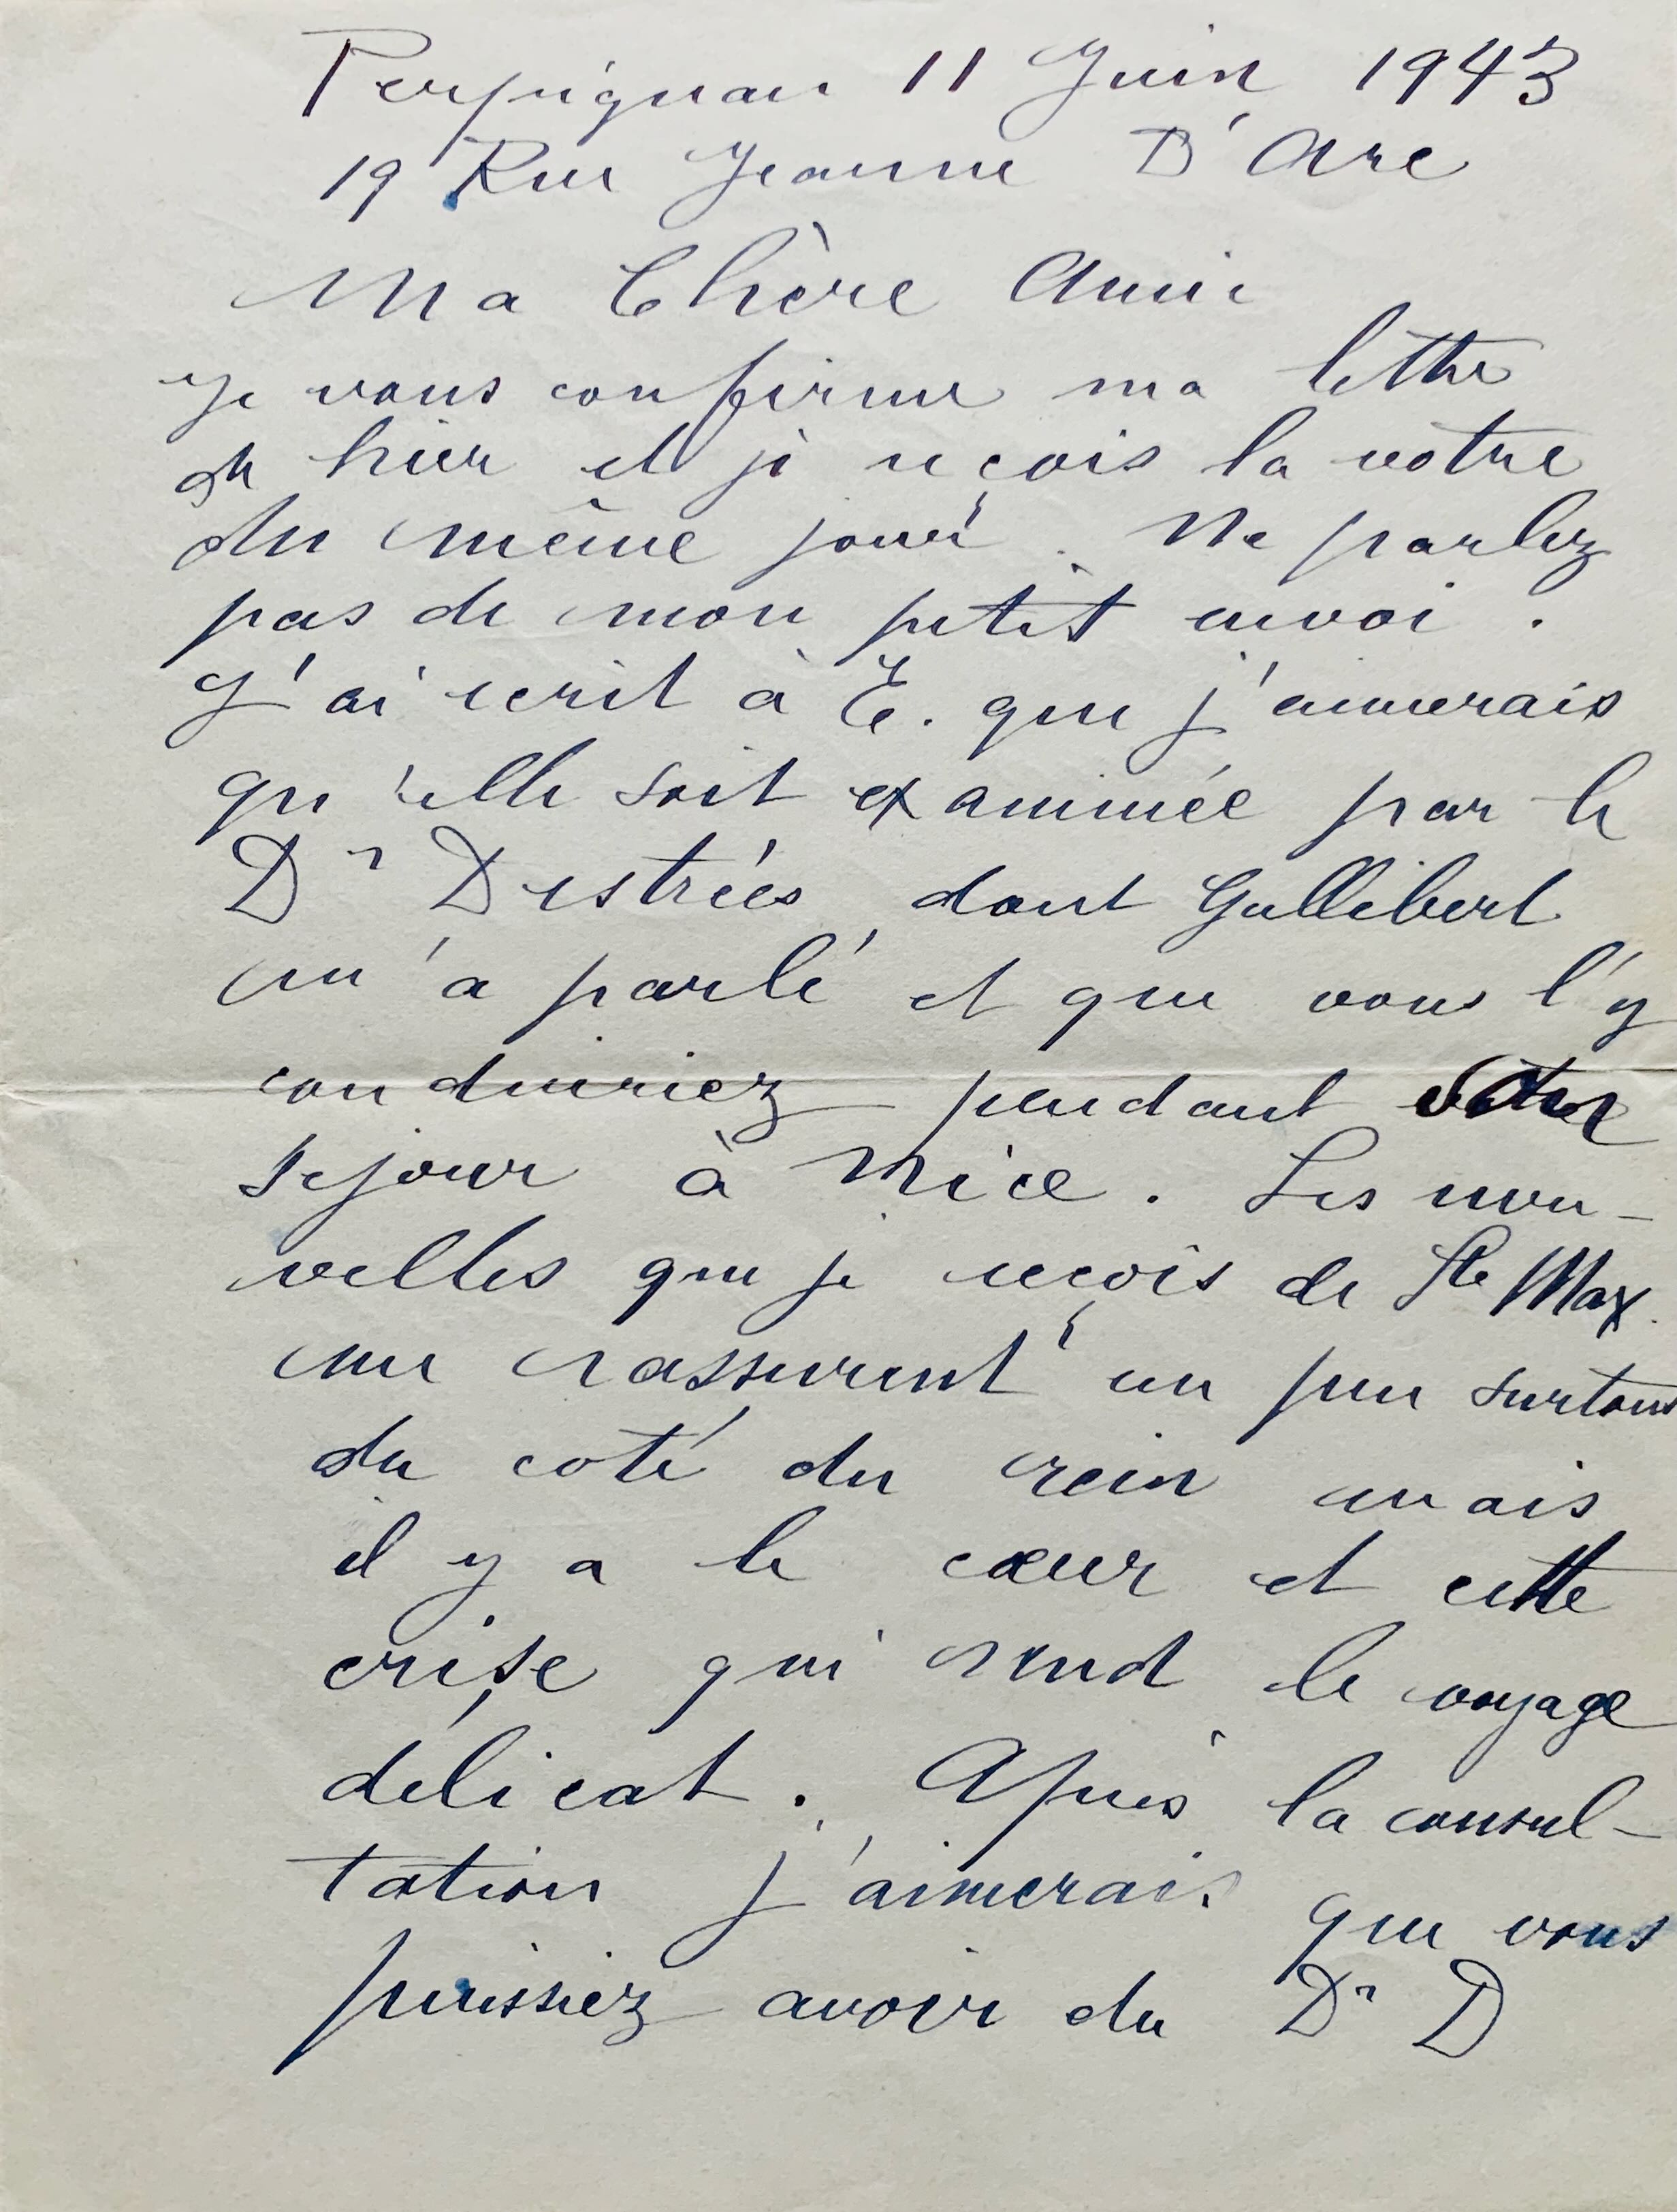 Perpignan 11 Juin 1943
19 Rue Jeanne D'Arc
Ma Chère Amie
Je vous confirme ma lettre
d'hier et je reçois la vôtre
du même jour. Ne parlez
pas de mon petit envoi.
J'ai ecrit à E. que j'aimerais
qu'elle soit examinée par le
Dr Destrées dont Gallibert
m'a parlé et que vous l'y
conduiriez pendant votre
sejour à Nice. Les nou-
velles que je reçois de Ste Max.
me rassurent un peu surtout
du coté du rein mais
il y a le cœur et cette
crise qui rend le voyage
délicat. Après la consul-
tation j'aimerais que vous
puissiez avoir du Dr D